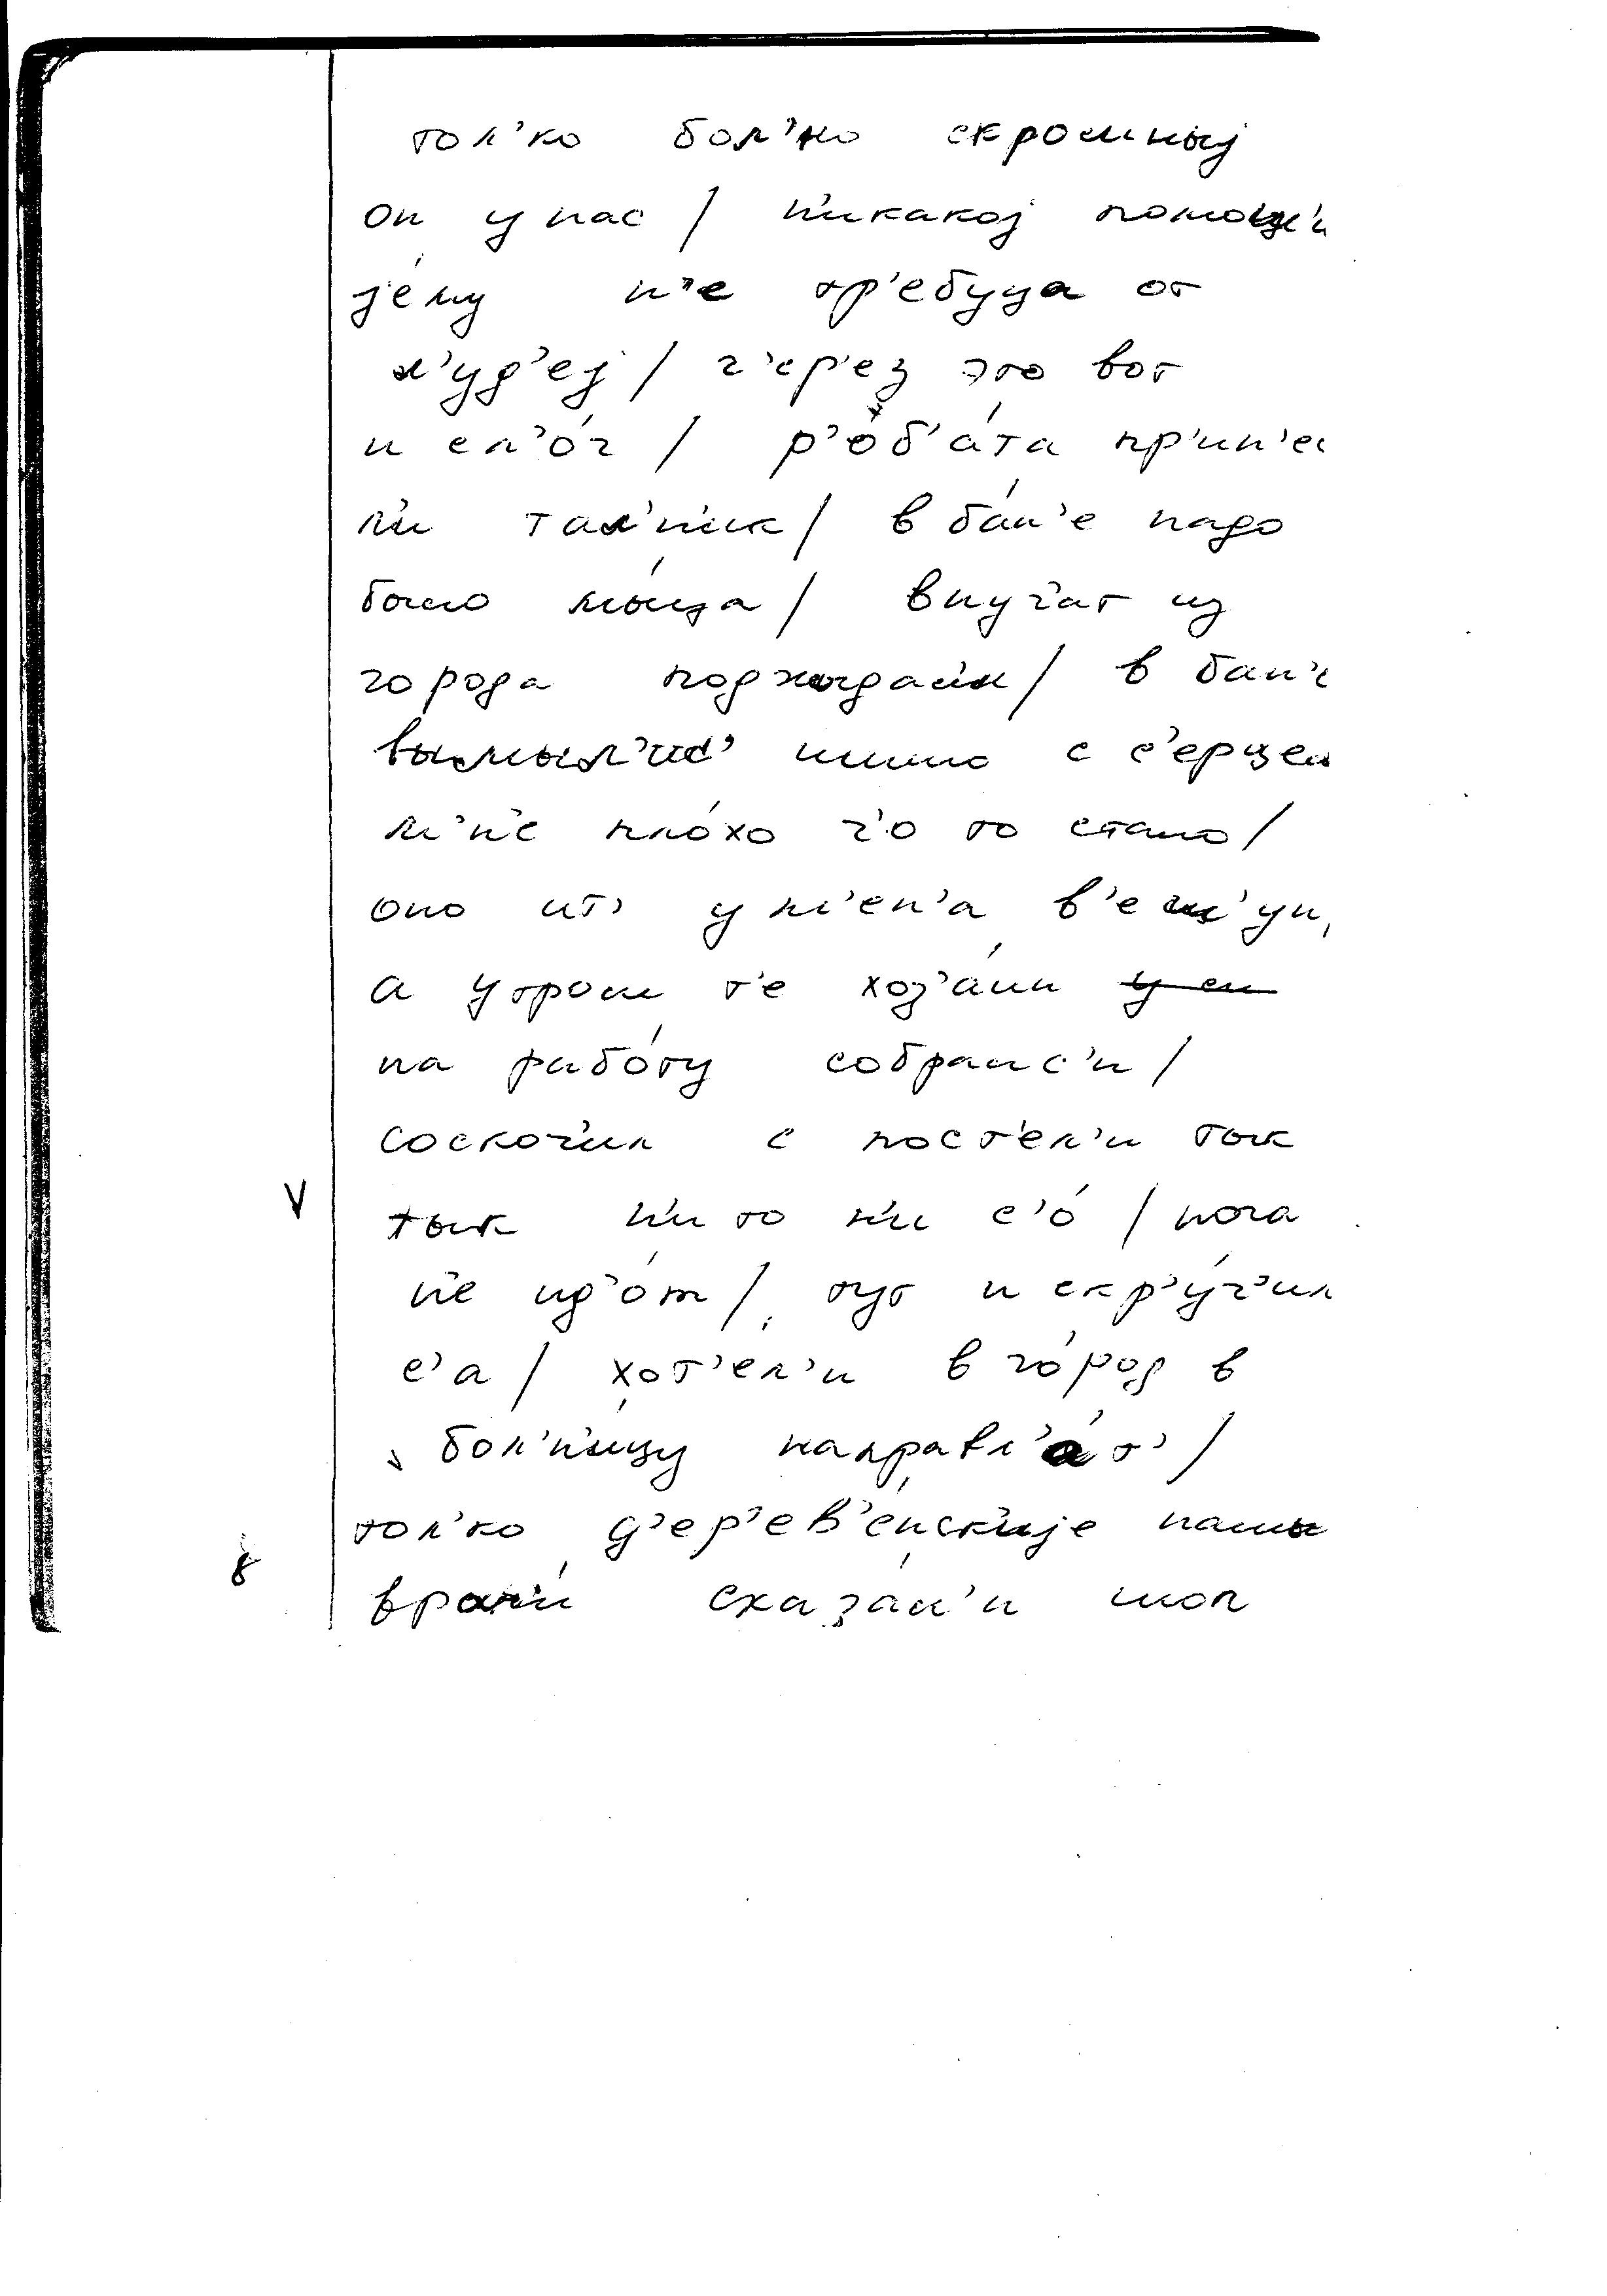 тол'ко бол'но скромный
он у нас / н'икакоj помощ'и
jему н'е тр'ебуца от
л'уд'еj / ч'ер'ез это вот
и сл'óг / р'об'áта пр'ин'ес
л'и тал'н'ик / в бáн'е надо
было мы́ца / внучат из
города поджыдал'и / в бан'е
вымылис' шшшо с с'ерцем
м'н'е плóхо ч'о то стало /
оно ит' у м'ен'а в'ешш'ун,
а утром т'е хоз'áин
на рабóту собралс'и /
соскоч'ил с пост'ел'и тык
тык н'и то н'и с'ó / нога
н'е ид'óт / тут и скр'ýч'ил
с'а / хот'ел'и в гóрод в
бол'н'ицу направл'áт' /
тол'ко д'ер'ев'éнск'иjе нашы
врач'и́ сказáл'и шоп
V
8